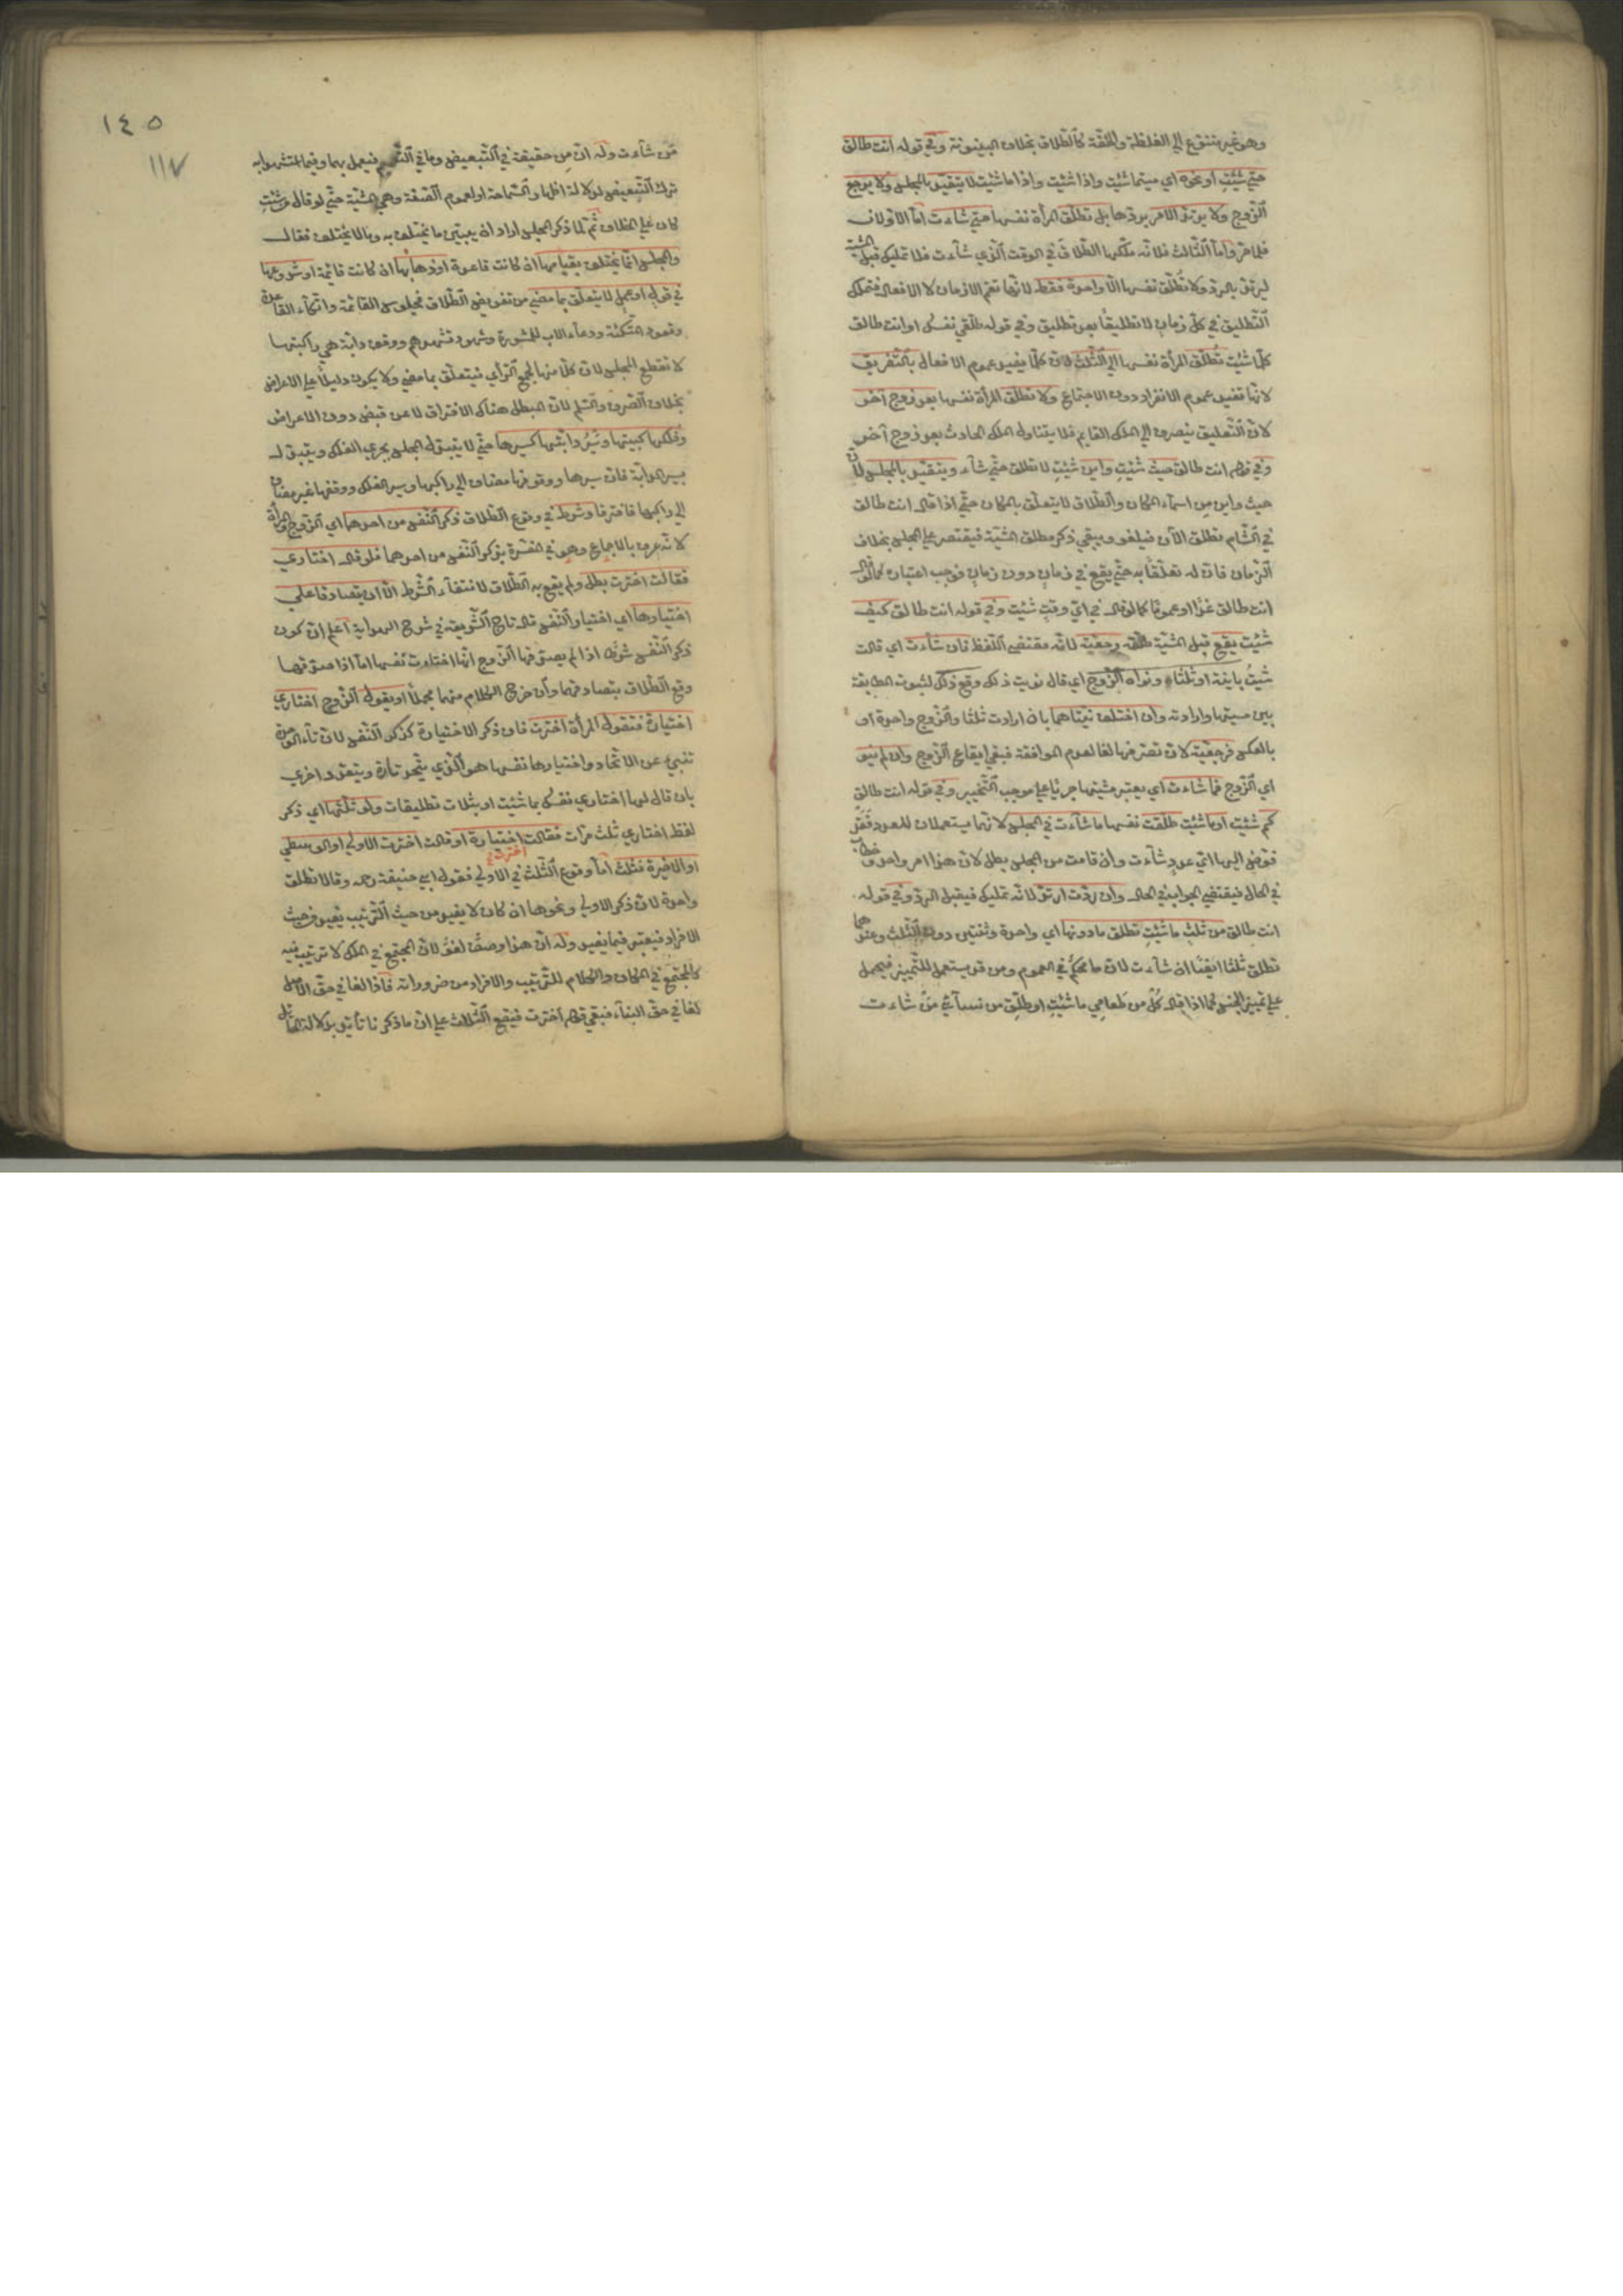 وهو غير متنوع إلى الغلظة والخفة كالطلاق بخلاف البينونة وفي قوله انت طالق
متى شئت او نحوه اي ميتما شئت واذا شئت واذا ما شئت لا يتقيد بالمجلس ولا يرجع
الزوج ولا يرتد الامر بردها بل تطلق المرأة نفسها متى شاءت اما الاولان
فلما مر واما الثالث فلانه ملكها الطلاق في الوقت الذي شاءت فلا تمليك قبل المشية
ليرتد بالرد ولا تطلق نفسها الا واحدة فقط لانها تعم الازمان لا الافعال فتملك
التطليق في كل زمان لا تطليقا بعد تطليق وفي قوله طلقي نفسك او انت طالق
كلما شئت تطلق المرأة نفسها الى الثلث لان كلما يفيد عموم الافعال بالتفريق
لانها تفيد عموم الانفراد دون الاجتماع ولا تطلق المرأة نفسها بعد زوج آخر
لان التعليق ينصرف الى الملك القايم فلا يتناول الملك الحادث بعد زوج آخر
وفي قوله انت طالق حيث شئت واين شئت لا تطلق حتى تشاء ويتقيد بالمجلس لان
حيث واين من اسماء المكان والطلاق لا يتعلق بالمكان حتى اذا قال انت طالق
في الشام تطلق الآن فيلغو ويبقى ذكر مطلق المشية فيقتصر على المجلس بخلاف
الزمان فان له تعلقا به حتى يقع في زمان دون زمان فوجب اعتباره كما لو قال
انت طالق غدا او عموما كما لو قال في اي وقت شئت وفي قوله انت طالق كيف
شئت يقع قبل المشية طلقة رجعية لانه مقتضى اللفظ فان شاءت اي قالت
شئت باينة او ثلثا ونواه الزوج اي قال نويت ذلك وقع ذلك لثبوت المطابقة
بين مشيتها وارادته وان اختلف نيتاهما بان ارادت ثلثا والزوج واحدة او
بالعكس فرجعية لان تصرفها لغا لعدم الموافقة فبقي ايقاع الزوج وان لم ينو
اي الزوج فما شاءت اي يعتبر مشيتها جريا على موجب التخيير وفي قوله انت طالق
كم شئت او ما شئت طلقت نفسها ما شاءت في المجلس لانهما يستعملان للعدد فقد
فوض اليها اي عدد شاءت وان قامت من المجلس بطل لان هذا امر واحد وخطاب
في الحال فيقتضي الجواب في الحال وان ردت ارتد لانه تمليك فيقبل الرد وفي قوله
انت طالق من ثلث ما شئت تطلق ما دونها اي واحدة وثنتين دون الثلث وعندهما
تطلق ثلثا ايضا ان شاءت لان ما محكم في العموم ومن قد يستعمل للتمييز فيحمل
على تمييز الجنس كما اذا قال كل من طعامي ما شئت او طلق من نسائي من شاءت
١٤٥
١١٧
من شاءت وله ان من حقيقة في التبعيض وما في التعميم فيعمل بهما وفيما استشهدا به
ترك التبعيض لدلالة اظهار السماحة او لعموم الصفة وهي المشية حتى لو قال من شئت
كان على الخلاف ثم لما ذكر المجلس اراد ان يبين ما يختلف به وما لا يختلف فقال
والمجلس انما يختلف بقيامها ان كانت قاعدة او ذهابها ان كانت قائمة او شروعها
في قول او عمل لا يتعلق بما مضى من تفويض الطلاق فجلوس القائمة واتكاء القاعدة
وقعود المتكئة ودعاء الاب للمشورة وشهود تشهدهم ووقف دابة هي راكبتها
لا تقطع المجلس لان كلا منها لجمع الرأي فيتعلق بما مضى ولا يكون دليلا على الاعراض
بخلاف الصرف والسلم لان المبطل هناك الافتراق لا عن قبض دون الاعراض
وفلكها كبيتها وسير دابتها كسيرها حتى لا يتبدل المجلس بجري الفلك ويتبدل
بسير الدابة فان سيرها ووقوفها مضاف الى راكبها وسير الفلك ووقفها غير مضاف
الى راكبها فافترقا وشرط في وقوع الطلاق ذكر النفس من احدهما اي الزوج والمرأة
لانه عرف بالاجماع وهو في المفسرة بذكر النفس من احدهما فلو قال اختاري
فقالت اخترت بطل ولم يقع به الطلاق لانتفاء الشرط الا ان يتصادقا على
اختيارها اي اختيار النفس قال تاج الشريعة في شرح الهداية اعلم ان كون
ذكر النفس شرطا اذا لم يصدقها الزوج انها اختارت نفسها اما اذا صدقها
وقع الطلاق بتصادقهما وان خرج الكلام منهما مجملا او يقول الزوج اختاري
اختيارة فتقول المرأة اخترت فان ذكر الاختيارة كذكر النفس لان تاء الوحدة
تنبئ عن الاتحاد واختيارها نفسها هو الذي يتحد تارة ويتعدد اخرى
بان قال لها اختاري نفسك بما شئت او بثلاث تطليقات ولو ثلثها اي ذكر
لفظ اختاري ثلث مرات فقالت اخترت اختيارة او قالت اخترت الاولى او الوسطى
او الاخيرة فثلث اما وقوع الثلث في الاولى فقول ابي حنيفة رحمه وقالا تطلق
واحدة لان ذكر الاولى ونحوها ان كان لا يفيد من حيث الترتيب يفيد من حيث
الافراد فيعتبر فيما يفيد وله ان هذا وصف لغو لان المجتمع في الملك لا ترتيب فيه
كالمجتمع في المكان والكلام للترتيب والافراد من ضروراته فاذا لغا في حق الاصل
لغا في حق البناء فبقي قولها اخترت فيقع الثلاث على ان ما ذكرنا تأيد بدلالة